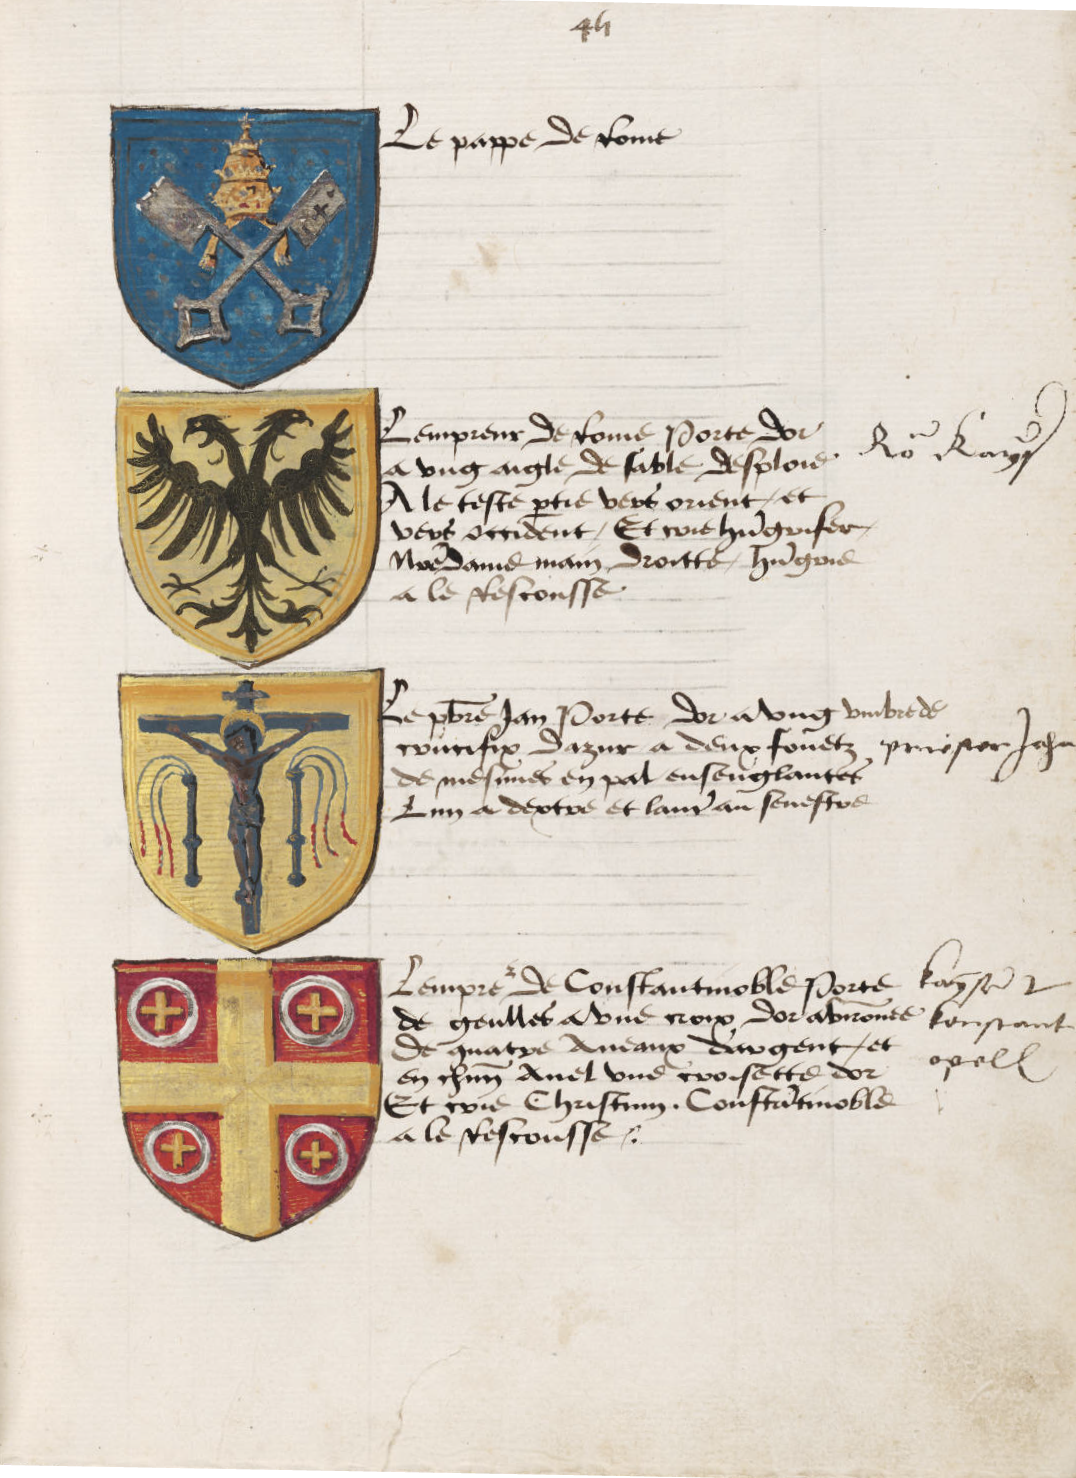 Le pappe de Rome
Lempereur de Rome Porte dor
a vng aigle de sable desploie
A le teste ptie vers orient / et
vers occident / Et crie
main droitte /
a le Rescousse
Le pbre Jan Porte dor a vng vmbre de
crucifix dazur a deux fouetz
de mesmes en pal ensenglantes
Lun a dextre et laut au senestre
priester Jahn
Lempre de Constantinoble Porte
de geulles a vne croix dor
de quatre Aneaux dargent / et
en chun Anel vne croisette dor
Et crie Christum . Constatinoble
a le Rescousse
konstant
opell